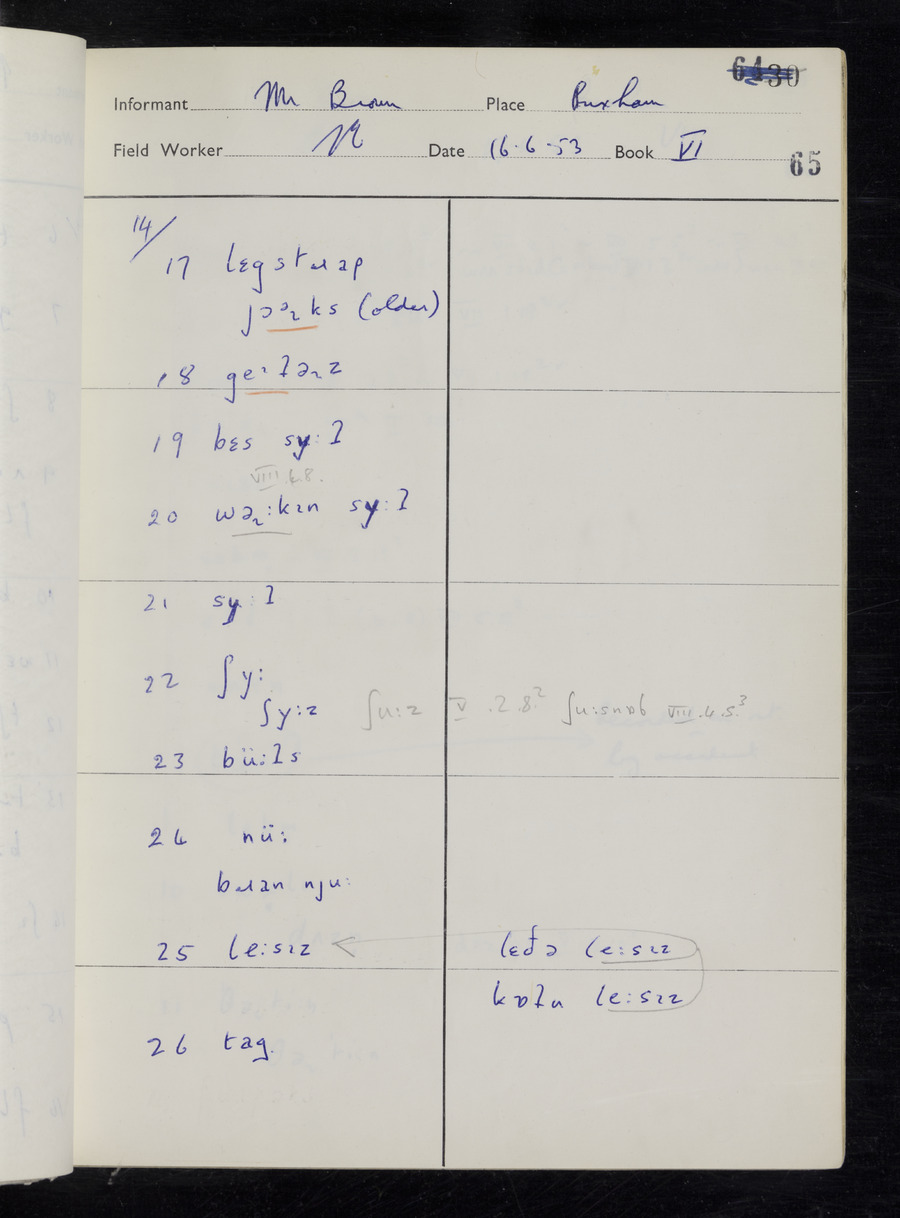 30
Informant Mr Brown Place Buxham
Field Worker Date 16.6.53 Book VI
65
14/
17 lɛgstɹap
jɔəks (older)
18 geətəz
19 bɛs sy:t
VIII.4.8.
20 wə:kɪn sy:t
21 sy:t
22 ʃy:
ʃy:z ʃu:z V.2.8.² ʃu:snɒb VIII.4.5.³
23 bü:ts
24 nü:
bɹan nju:
25 le:sɪz lɛðə le:sɪz
kɒtn le:sɪz
26 tag.